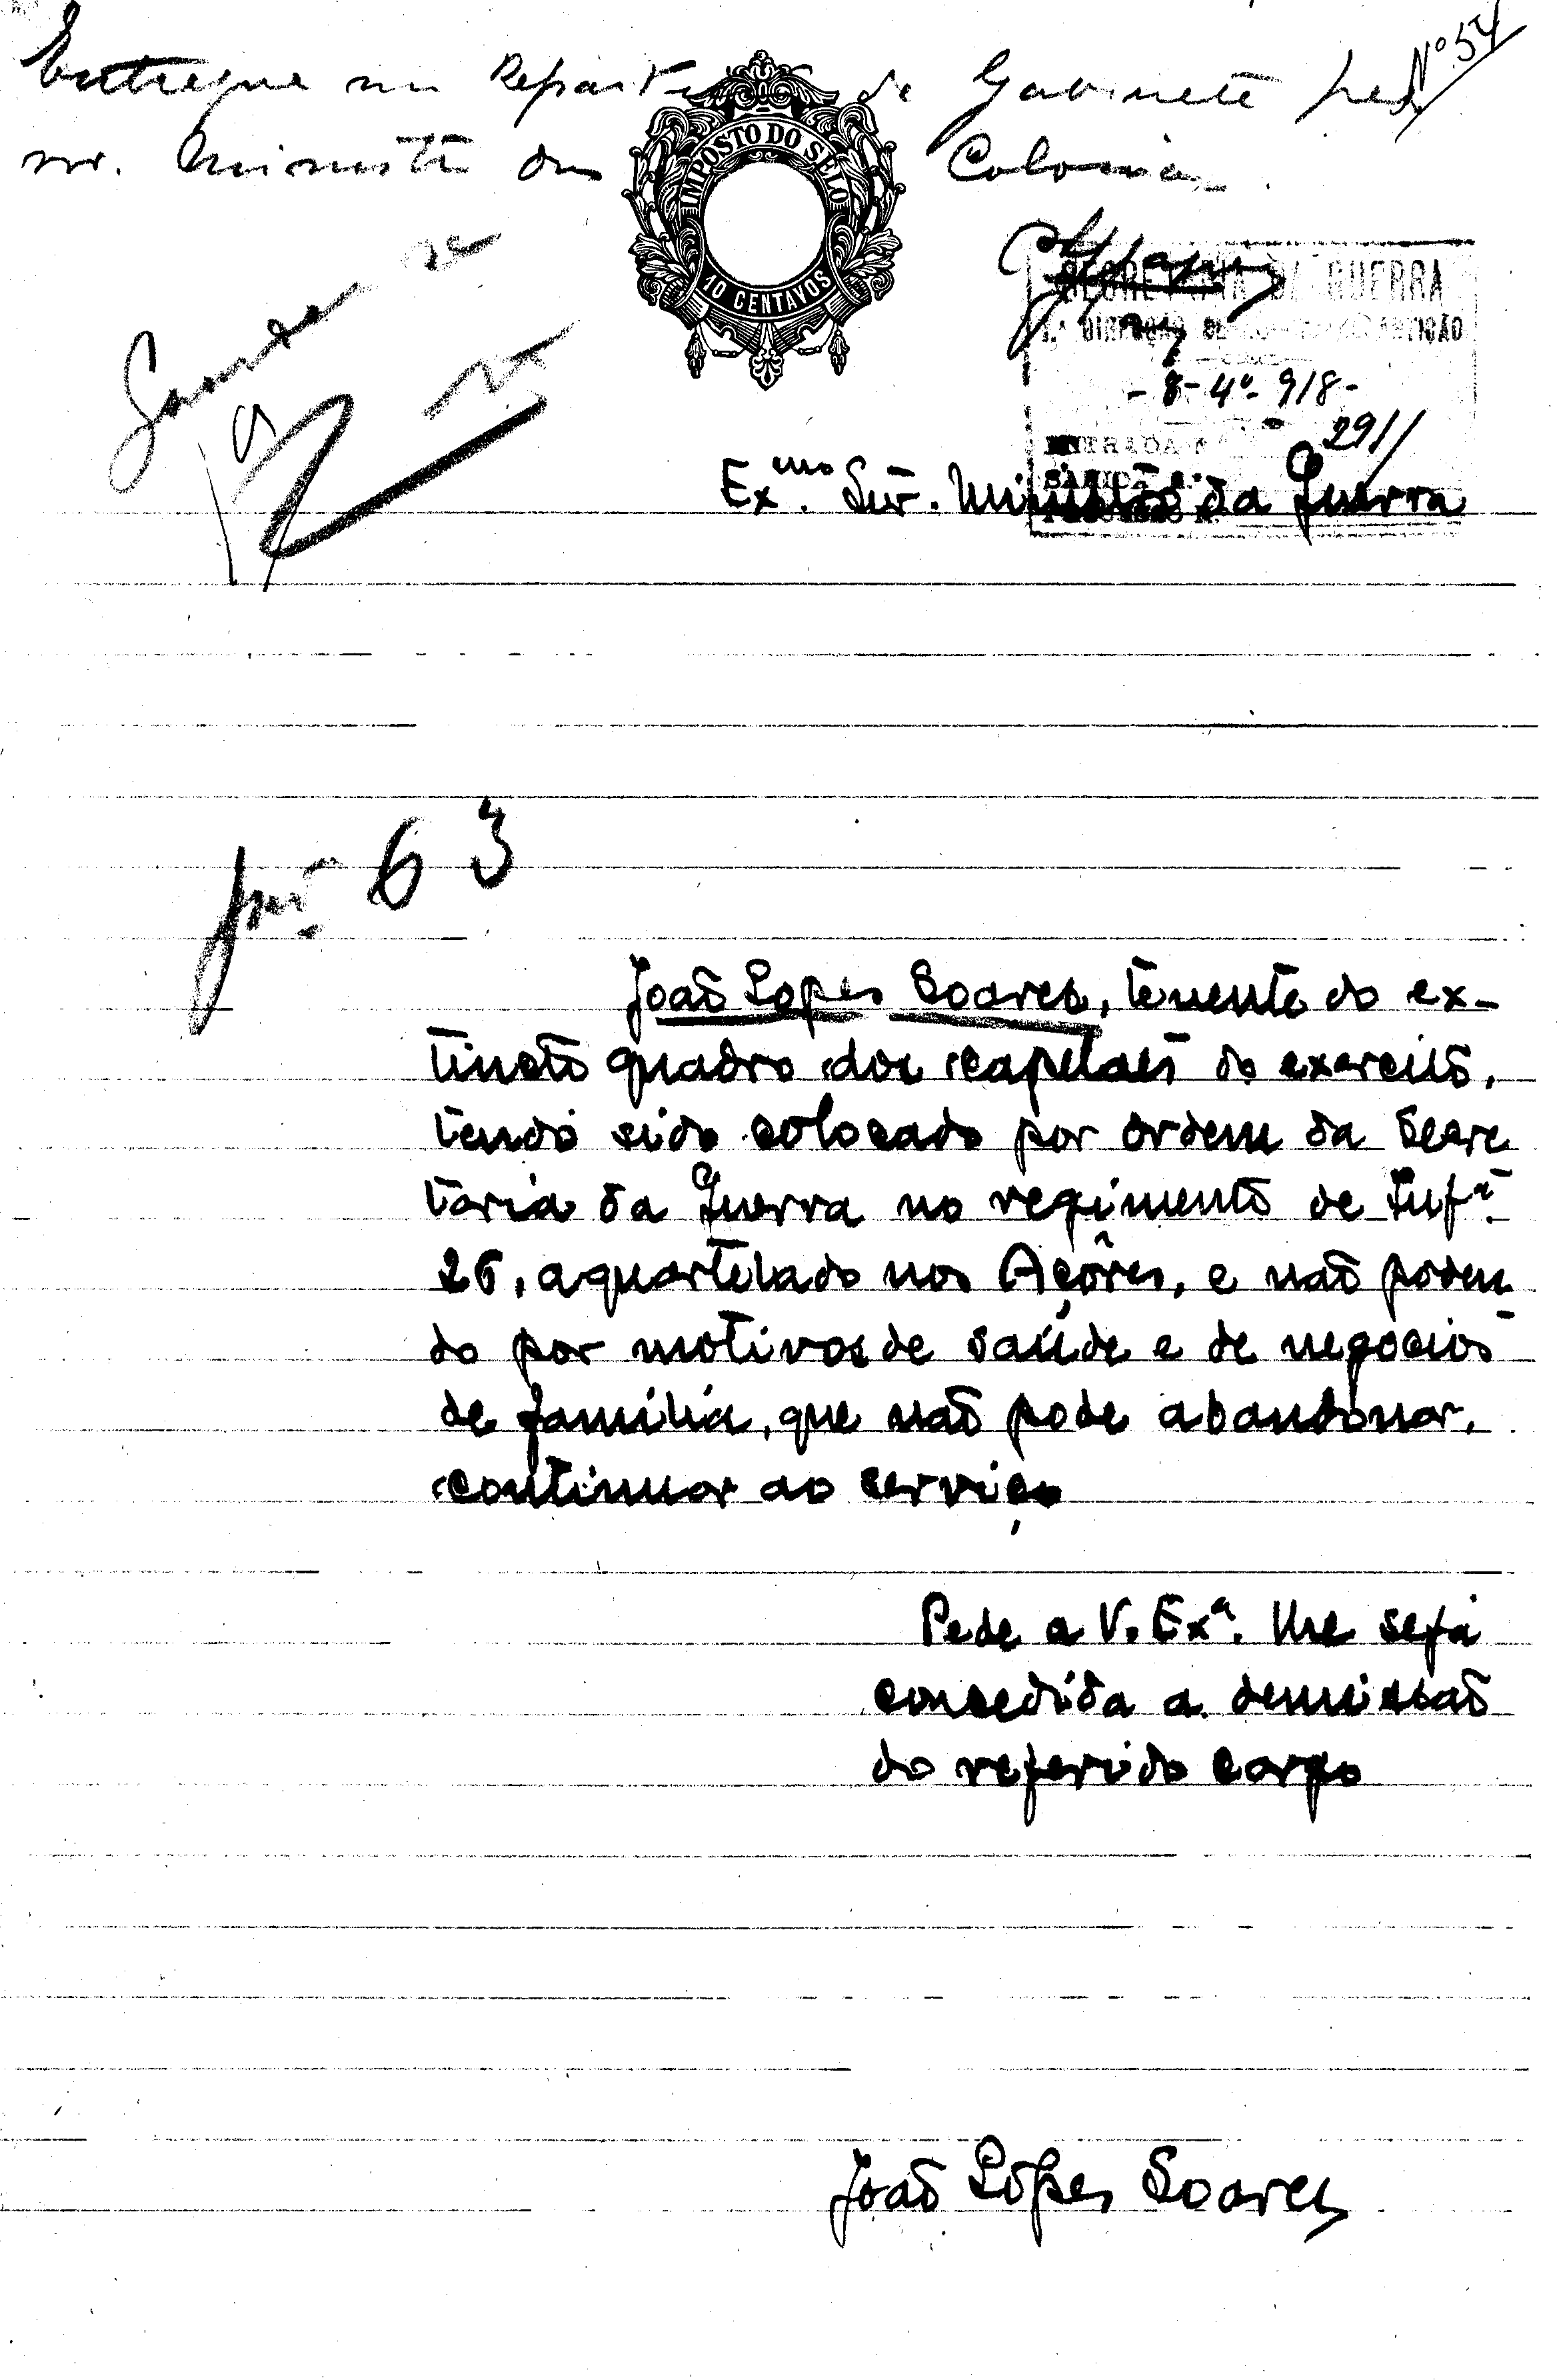 Entregue na Repartição de Gabinete pelo Nº 54
snr. Ministro das Colonias.
IMPOSTO DO SELO
10 CENTAVOS
SECRETARIA DA GUERRA
1.ª DIRECÇÃO REPARTIÇÃO
- 8 - 4º - 918 -
ENTRADA Nº 2911
Exmo. Snr. Ministro da Guerra
63
João Lopes Soares, tenente do ex-
tincto quadro dos capelães do exercito,
tendo sido colocado por ordem da Secre
taria da Guerra no regimento de Infª.
26, aquartelado nos Açôres, e não poden
do por motivos de saúde e de negocios
de familia, que não pode abandonar,
continuar ao serviço
Pede a V. Exª. lhe seja
concedida a demissão
do referido corpo
João Lopes Soares